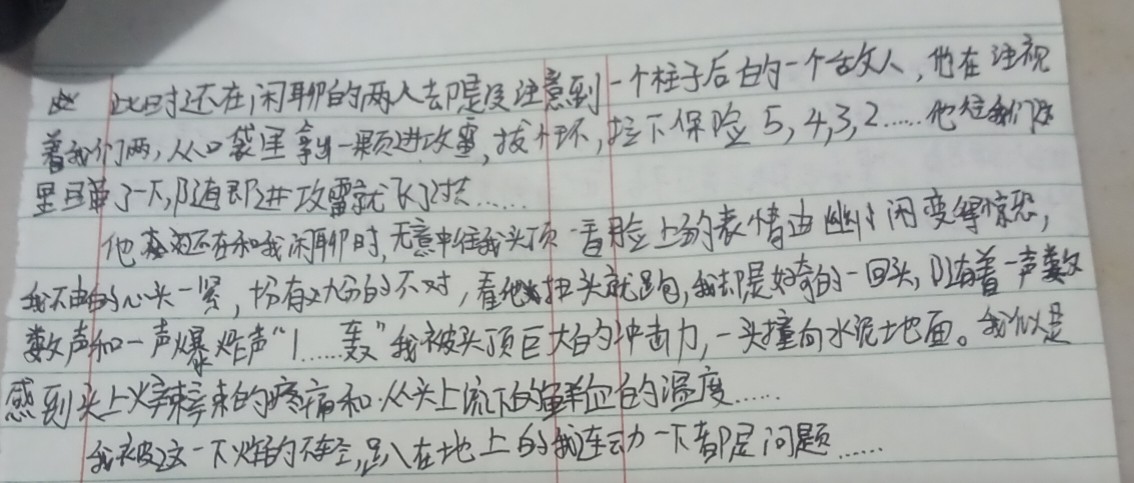 此时还在闲聊的两人却是没注意到一个柱子后的一个敌人，他在注视
着我们两，从口袋里拿出一颗进攻雷，拔个环，拉下保险5，4，3，2……他往我们这
里甩了一下，随即进攻雷就飞了过去……
他还在和我闲聊时，无意中往我头顶一看脸上的表情由幽闲变得惊恐，
我不由的心头一紧，十分有九分的不对，看他扭头就跑，我却是好奇的一回头，随着一声数
数声和一声爆炸声“1……轰”我被头顶巨大的冲击力，一头撞向水泥地面。我似是
感到头上火辣辣的疼痛和从头上流下的鲜血的温度……
我被这一下炸的不轻，趴在地上的我连动一下都是问题……